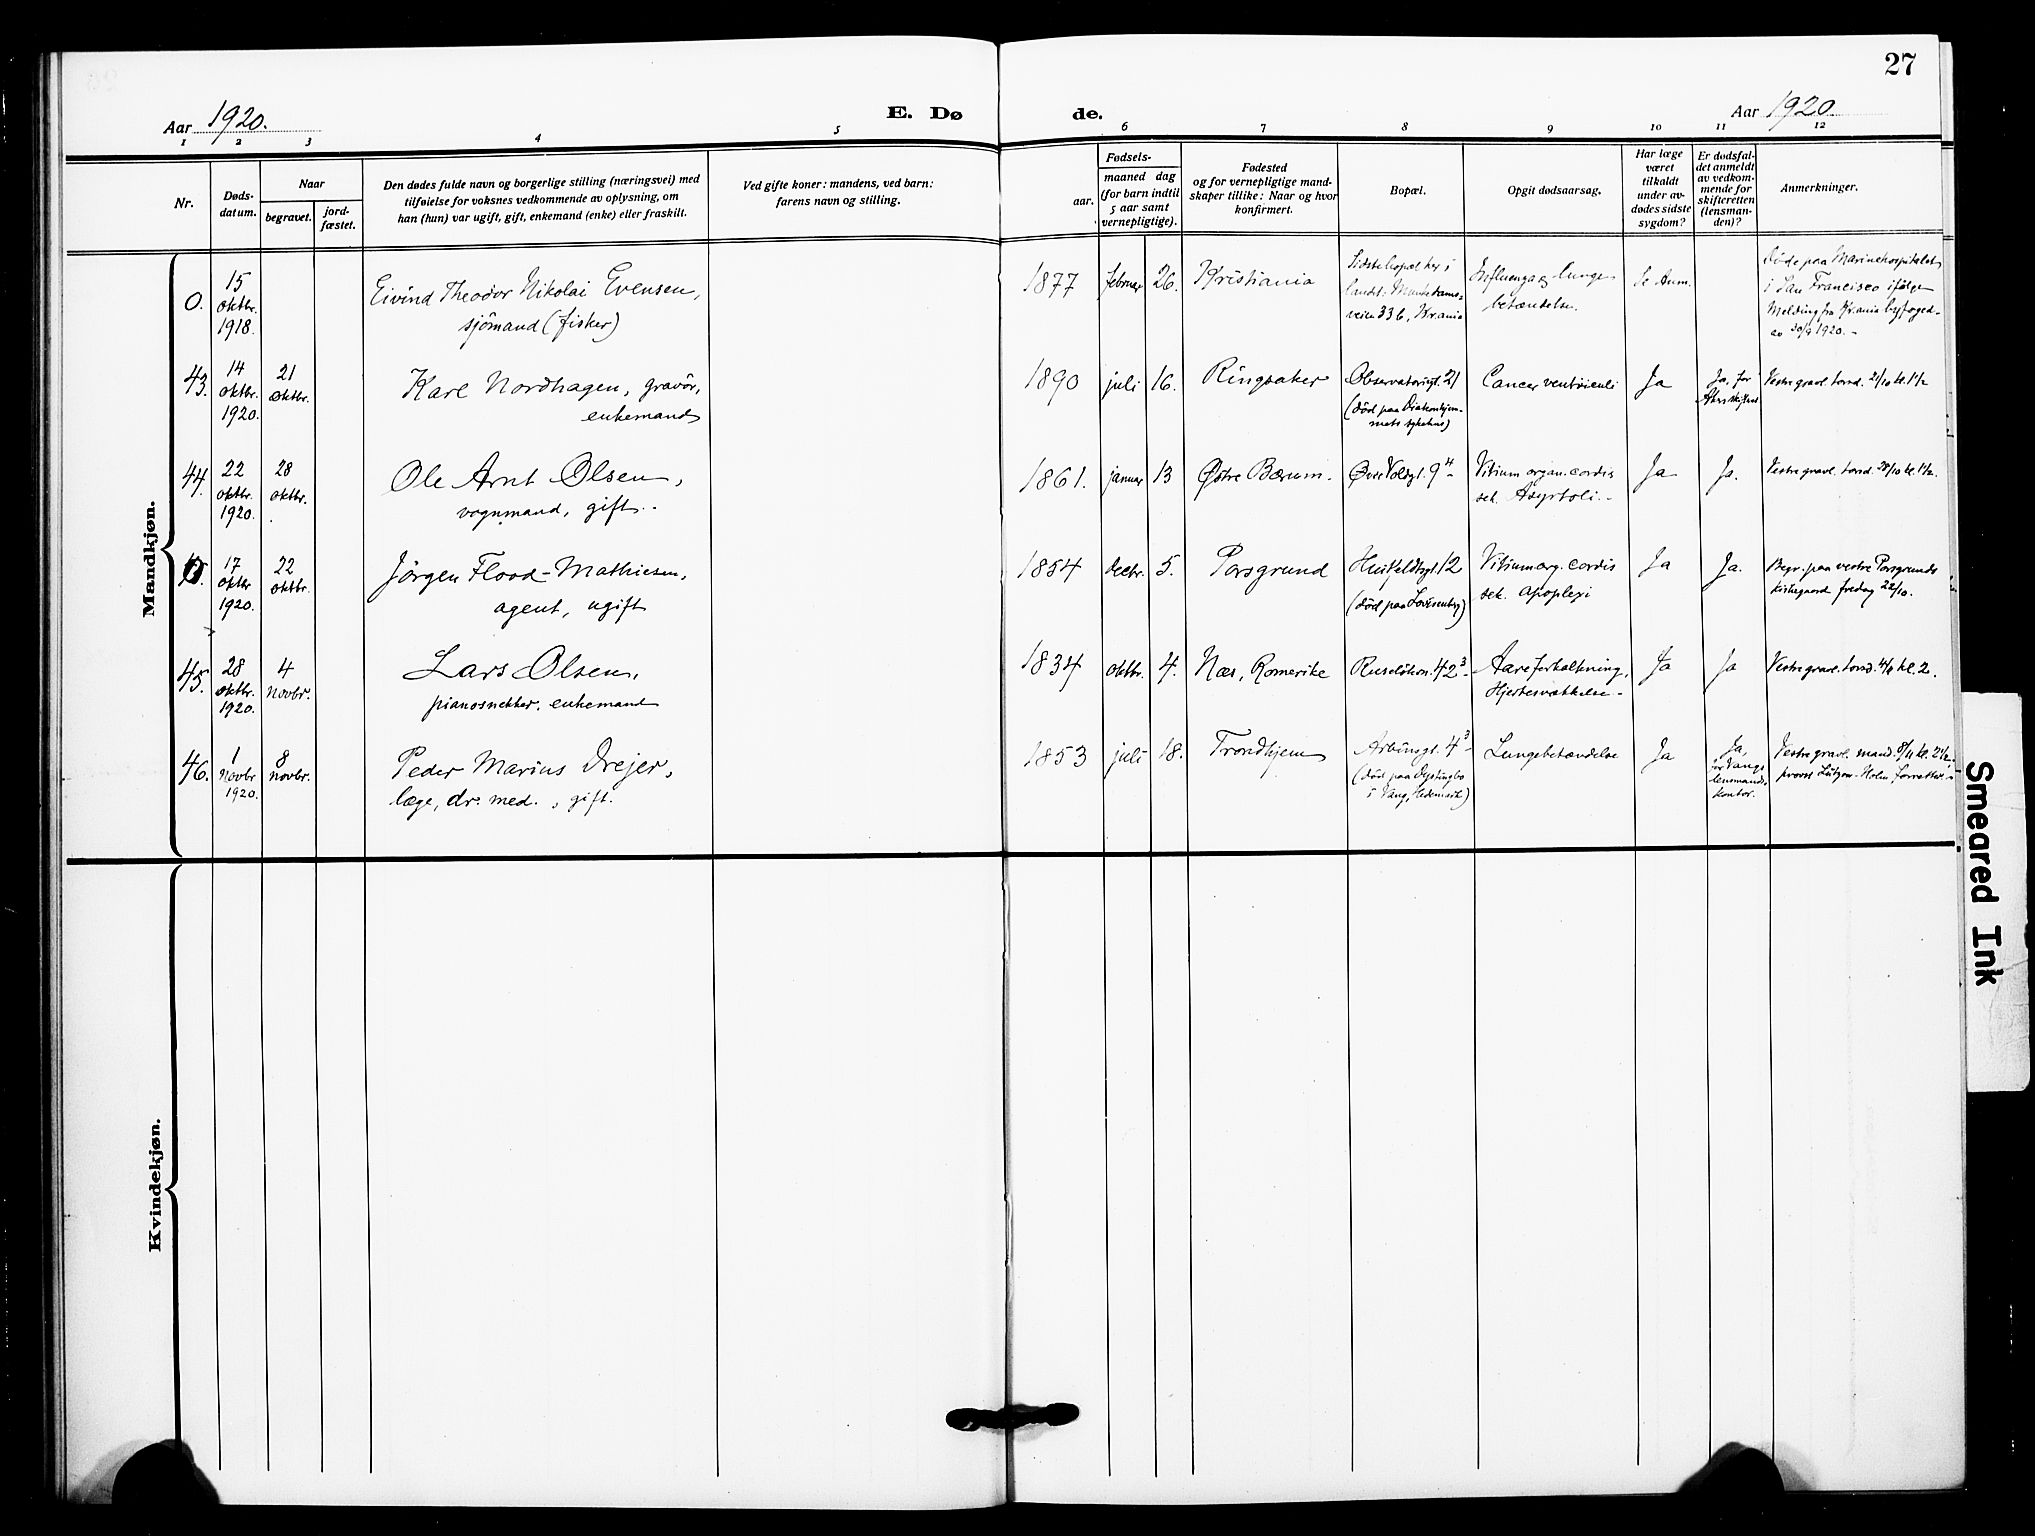 27
Aar 1920.
E. Dø
de.
Aar 1920.
1 2 3 4 5 6 7 8 9 10 11 12
Nr.
Døds-
datum.
Naar
begravet.
jord-
fæstet.
Den dødes fulde navn og borgerlige stilling (næringsvei) med
tilføielse for voksnes vedkommende av oplysning, om
han (hun) var ugift, gift, enkemand (enke) eller fraskilt.
Ved gifte koner: mandens, ved barn:
farens navn og stilling.
Fødsels-
aar.
maaned dag
(for barn indtil
5 aar samt
vernepligtige).
Fødested
og for vernepligtige mand-
skaper tillike: Naar og hvor
konfirmert.
Bopæl.
Opgit dødsaarsag.
Har læge
været
tilkaldt
under av-
dødes sidste
sygdom?
Er dødsfal-
det anmeldt
av vedkom-
mende for
skifteretten
(lensman-
den)?
Anmerkninger.
Mandkjøn.
0.
15
oktbr.
1918.
Eivind Theodor Nikolai Evensen,
sjömand (fisker)
1877
februar
26.
Kristiania
Sidste bopæl her i
landet: Munkedams-
veien 33 b, Kr.ania
Influenza og lunge-
betændelse.
Se Anm.
Døde paa Marinehospitalet
i San Francisco ifølge
Melding fra Kr.ania byfoged-
av 20/9 1920. -
43.
14
oktbr.
1920.
21
oktbr.
Karl Nordhagen, gravör,
enkemand
1890
juli
16.
Ringsaker
Observatoriegt. 21
(död paa Diakonhjem-
mets sykehus)
Cancer ventriculi
Ja
Ja, for
Vestre gravl. torsd. 21/10 kl. 1 1/2
44.
22
oktbr.
1920.
28
oktbr.
Ole Arnt Olsen,
vognmand, gift.
1861.
januar
13
Østre Bærum.
Øvre Voldgt. 9 4
Vitium organ. cordis
sek. Asystoli. -
Ja
Ja.
Vestre gravl. torsd. 28/10 kl. 1 1/2.
0.
17
oktbr
1920.
22
oktbr.
Jörgen Flood-Mathiesen,
agent, ugift
1854
decbr.
5.
Porsgrund
Huitfeldtsgt. 12
(död paa Lovisenberg)
Vitium org. cordis
sek. apoplexi
Ja
Ja.
Begr. paa vestre Porsgrunds
kirkegaard fredag 22/10.
45.
28
oktbr.
1920.
4
novbr.
Lars Olsen,
pianosnekker, enkemand
1834
oktbr.
4.
Næs, Romerike
Ruselökv. 42 3
Aareforkalkning,
Hjertesvækkelse -
Ja
Ja
Vestre gravl. torsd. 4/11 kl. 2.
46.
1
novbr
1920.
8
novbr.
Peder Marius Drejer,
læge, dr. med., gift.
1853
juli
18.
Trondhjem
Arbinsgt. 4 3
(död paa
i Vang, Hedemark)
Lungebetændelse
Ja
Ja,
for Vangs
lensmands-
kontor.
Vestre gravl. mand. 8/11 kl. 2 1/2,
provst Lützow-Holm forrettet. -
Kvindekjøn.
Smeared Ink